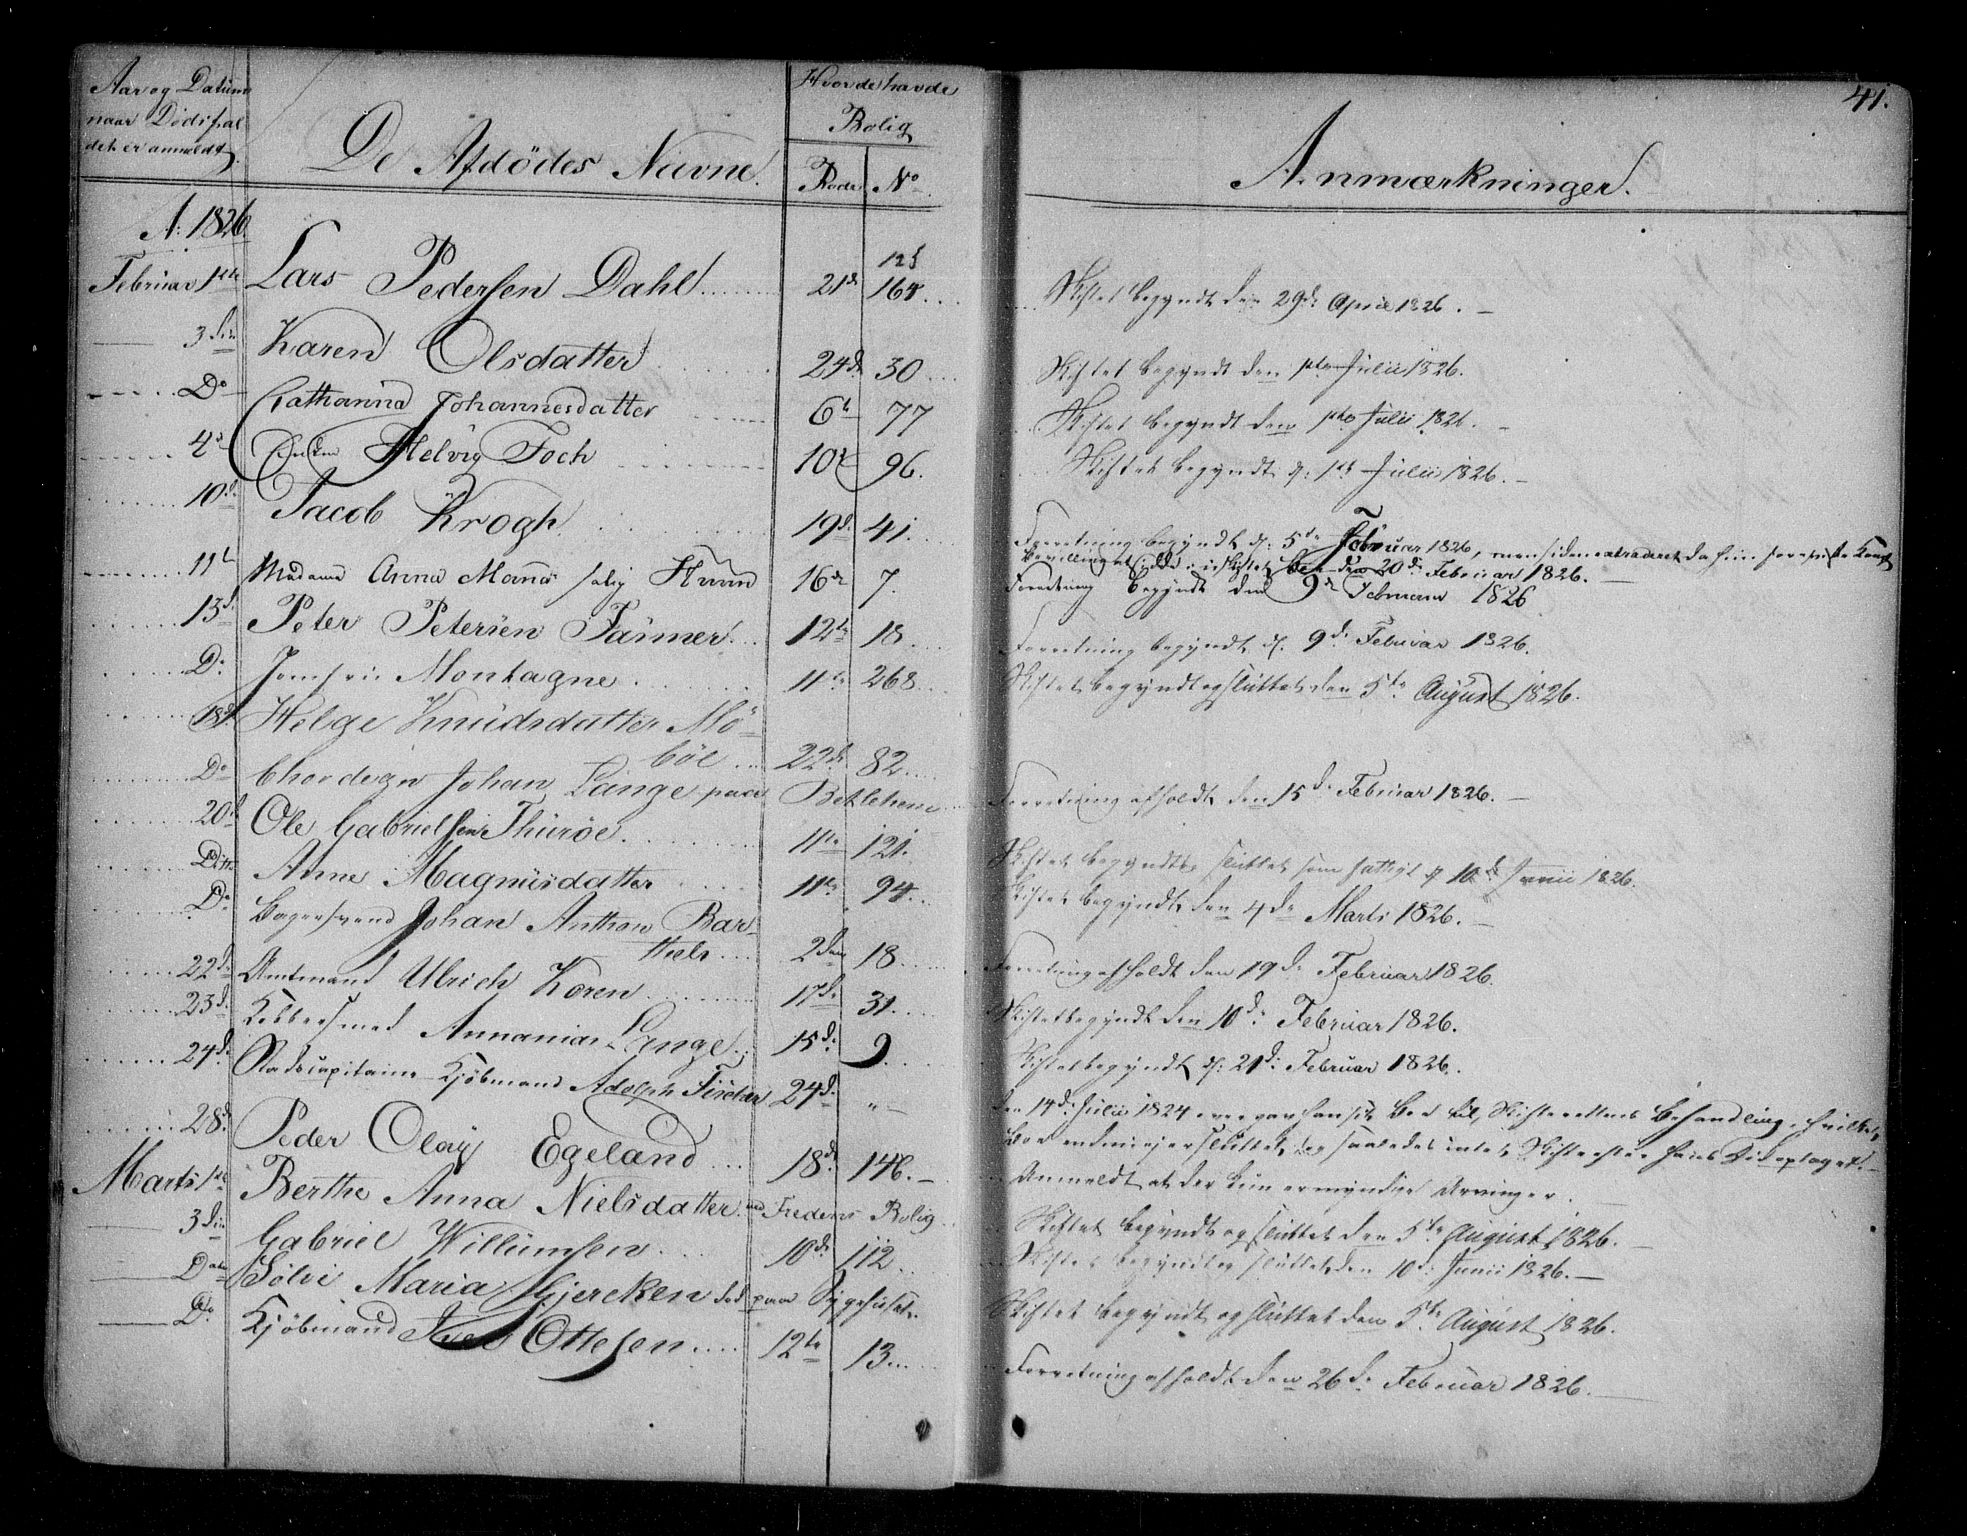 Aar og Datum
naar Dødsfal
det er anmeldt.
De Afdödes Navne.
Hvor de havde
Bolig
Rode No
Anmærkninger.
41.
A: 1826
Februar 1ste Lars Pedersen Dahl 21de 125
164 Skiftet begyndt den 29de April 1826.
3die Karen Olsdatter 24de 30 Skiftet begyndt den 1ste Julii 1826.
Do Cathanna Johannesdatter 6te 77 Skiftet begyndt den 1ste Julii 1826.
4de Enken Helvig Foch 10de 96. Skiftet begyndt d: 1ste Julii 1826.
10de Jacob Krogh 19de 41. Forretning begyndt d: 5te Februar 1826, men siden
Bevilling den 20de Februar 1826.
11te Madame Anna Maria salig 16de 7. Forretning begyndt den 9de Februar 1826
13de Peter Petersen Farmer 12te 18. Forretning begyndt d. 9de Februar 1826.
Do Jomfrue Montagne 11te 268 Skiftet begyndt og sluttet den 5te August 1826.
18de Helge Knudsdatter Mö-
böe 22de 82
Do Chordegn Johan Lange paa Bethlehem Forretning afholdt den 15de Februar 1826.
20de Ole Gabrielsen Thuröe 11te 121. Skiftet begyndt og sluttet som fattigt d 10de Junii 1826.
Ditto Anne Magnusdatter 11te 94 Skiftet begyndt den 4de Marts 1826.
Do Bagersvend Johan Anthon Bar-
thels 2den 18 Forretning afholdt den 19de Februar 1826.
22de Amtmand Ulrich Koren 17de 31. Skiftet begyndt den 10de Februar 1826.
23de Kobbersmed Annanias Lange 15de 9. Skiftet begyndt d: 21de Februar 1826.
24de Stadscapitaine Kjöbmand Adolph Fischer 24de „ Den 14de Julii 1824 overgav han sit Boe til Skifterettens Behandling, hvilket
Boe endnu ej er sluttet, og saaledes intet Skifte efter hans Död optaget.
28de Peder Olay Egeland 18de 146. Anmeldt at der kun er myndige Arvinger.
Marts 1ste Berthe Anna Nielsdatter ved Fredens Bolig Skiftet begyndt og sluttet den 5te August 1826.
3die Gabriel Willumsen 10de 112 Skiftet begyndt og sluttet den 10de Junii 1826.
Dato Sölvi Maria Gjercken död paa Sygehuset. Skiftet begyndt og sluttet den 5te August 1826.
Do Kjöbmand Ottesen 12te 13 Forretning afholdt den 26de Februar 1826.